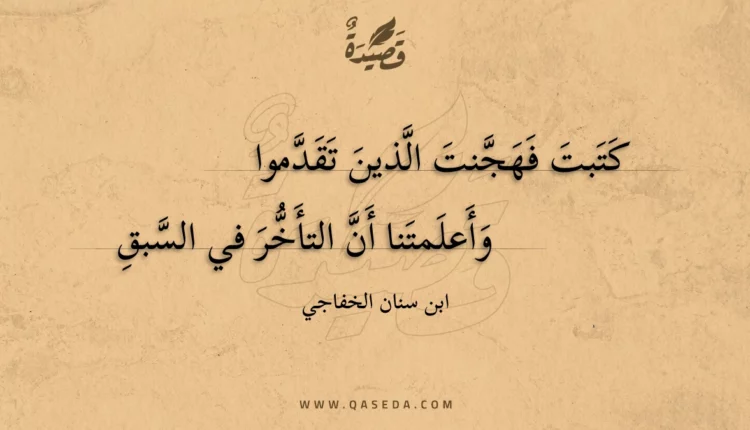 قَصِيدَةٌ
كَتَبتَ فَهَجَّنتَ الَّذينَ تَقَدَّموا
وَأَعلَمتَنا أَنَّ التأَخُّرَ في السَّبقِ
ابن سنان الخفاجي
WWW.QASEDA.COM